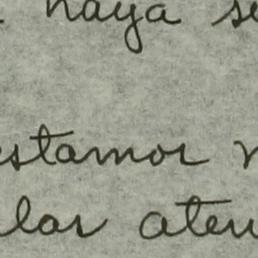 haya se
estamos
las aten